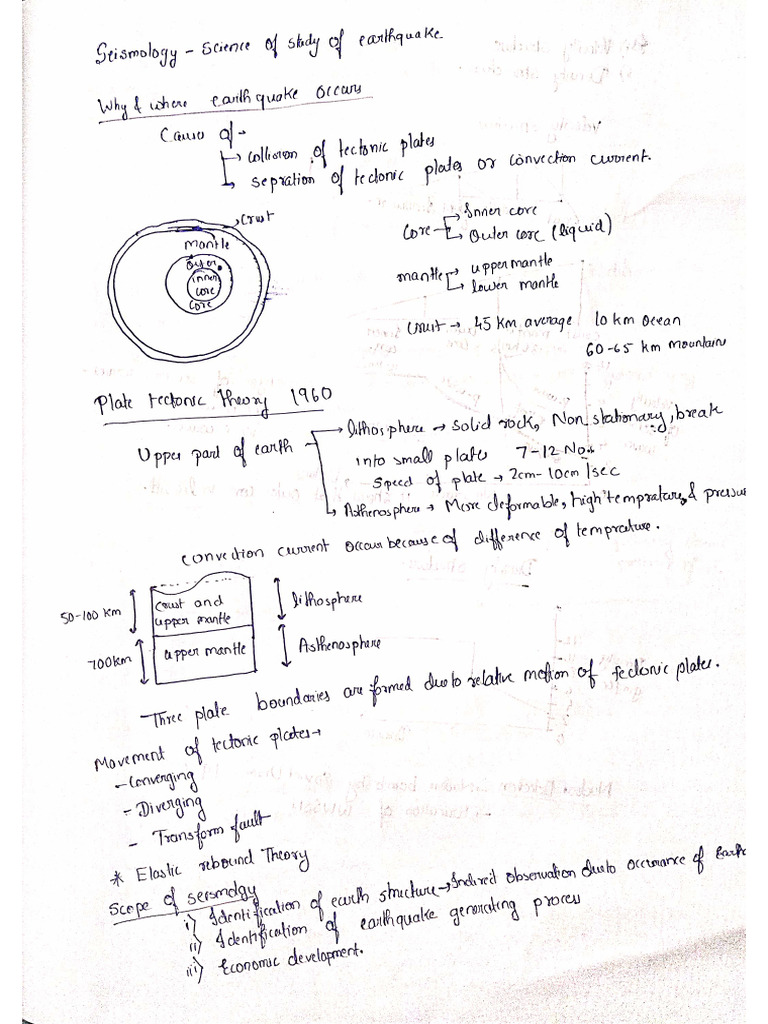 Seismology - Science of study of earthquake.
Why & where earthquake occurs
Cause of -
→ collision of tectonic plates
→ sepration of tectonic plates or convection current.
→ crust
mantle
outer
inner
core
core
core → Inner core
→ Outer core (liquid)
mantle → upper mantle
→ lower mantle
crust → 45 Km average 10 km Ocean
60-65 km mountain
Plate tectonic theory 1960
Upper part of earth → lithosphere → Solid rock, Non stationary, break
into small plates 7-12 Nos.
Speed of plate → 2cm-10cm/sec
→ Asthenosphere → More deformable, high temprature, & pressure
convection current occur because of difference of temprature.
50-100 Km
crust and
upper mantle
lithosphere
700km
upper mantle
Asthenosphere
- Three plate boundaries are formed due to relative motion of tectonic plates.
Movement of tectonic plates →
- Converging
- Diverging
- Transform fault
* Elastic rebound Theory
Scope of seismology
i) Identification of earth structure → Indirect observation due to occurance of Earth
ii) Identification of earthquake generating process
iii) Economic development.